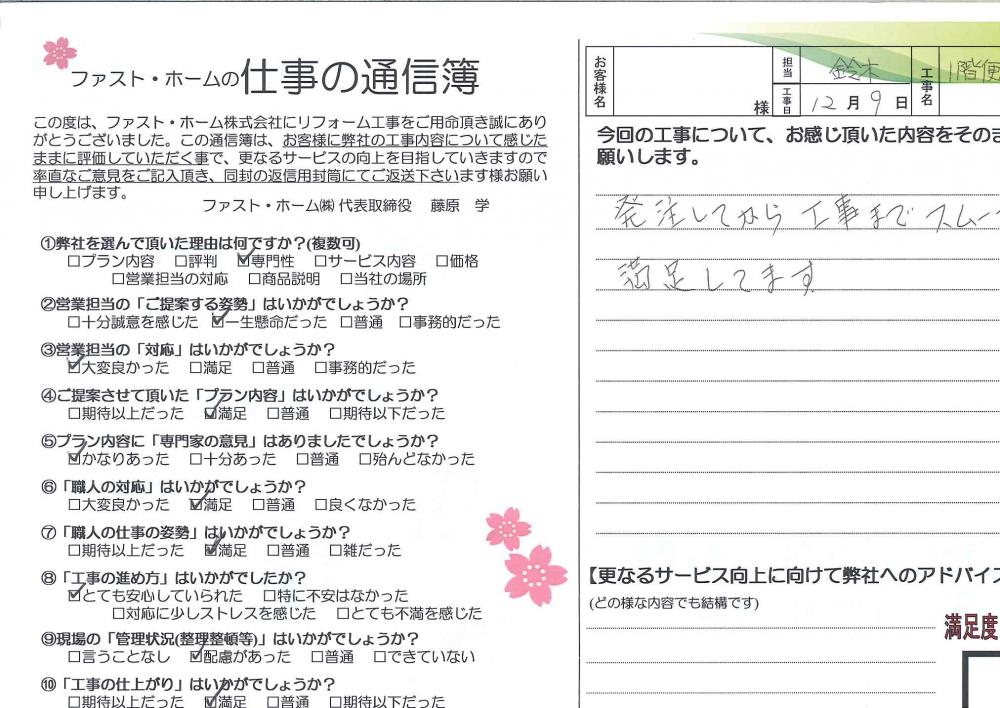 ファスト・ホームの仕事の通信簿
この度は、ファスト・ホーム株式会社にリフォーム工事をご用命頂き誠にあり
がとうございました。この通信簿は、お客様に弊社の工事内容について感じた
ままに評価していただく事で、更なるサービスの向上を目指していきますので
率直なご意見をご記入頂き、同封の返信用封筒にてご返送下さいます様お願い
申し上げます。
ファスト・ホーム㈱ 代表取締役 藤原 学
①弊社を選んで頂いた理由は何ですか？(複数可)
□プラン内容 □評判 ☑専門性 □サービス内容 □価格
□営業担当の対応 □商品説明 □当社の場所
②営業担当の「ご提案する姿勢」はいかがでしょうか？
□十分誠意を感じた ☑一生懸命だった □普通 □事務的だった
③営業担当の「対応」はいかがでしょうか？
☑大変良かった □満足 □普通 □事務的だった
④ご提案させて頂いた「プラン内容」はいかがでしょうか？
□期待以上だった ☑満足 □普通 □期待以下だった
⑤プラン内容に「専門家の意見」はありましたでしょうか？
☑かなりあった □十分あった □普通 □殆んどなかった
⑥「職人の対応」はいかがでしょうか？
□大変良かった ☑満足 □普通 □良くなかった
⑦「職人の仕事の姿勢」はいかがでしょうか？
□期待以上だった ☑満足 □普通 □雑だった
⑧「工事の進め方」はいかがでしたか？
☑とても安心していられた □特に不安はなかった
□対応に少しストレスを感じた □とても不満を感じた
⑨現場の「管理状況(整理整頓等)」はいかがでしょうか？
□言うことなし ☑配慮があった □普通 □できていない
⑩「工事の仕上がり」はいかがでしょうか？
□期待以上だった ☑満足 □普通 □期待以下だった
お客様名 様 担当 鈴木 工事名 1階便
工事日 12月9日
今回の工事について、お感じ頂いた内容をそのま
願いします。
発注してから工事までスムー
満足してます
【更なるサービス向上に向けて弊社へのアドバイス
(どの様な内容でも結構です)
満足度